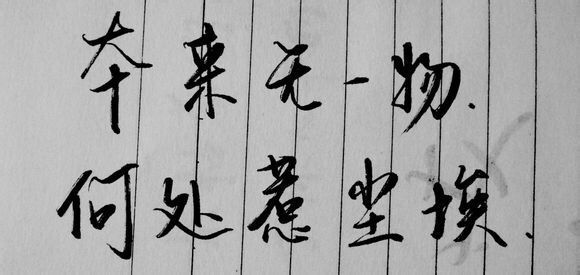 本来无一物.
何处惹尘埃.